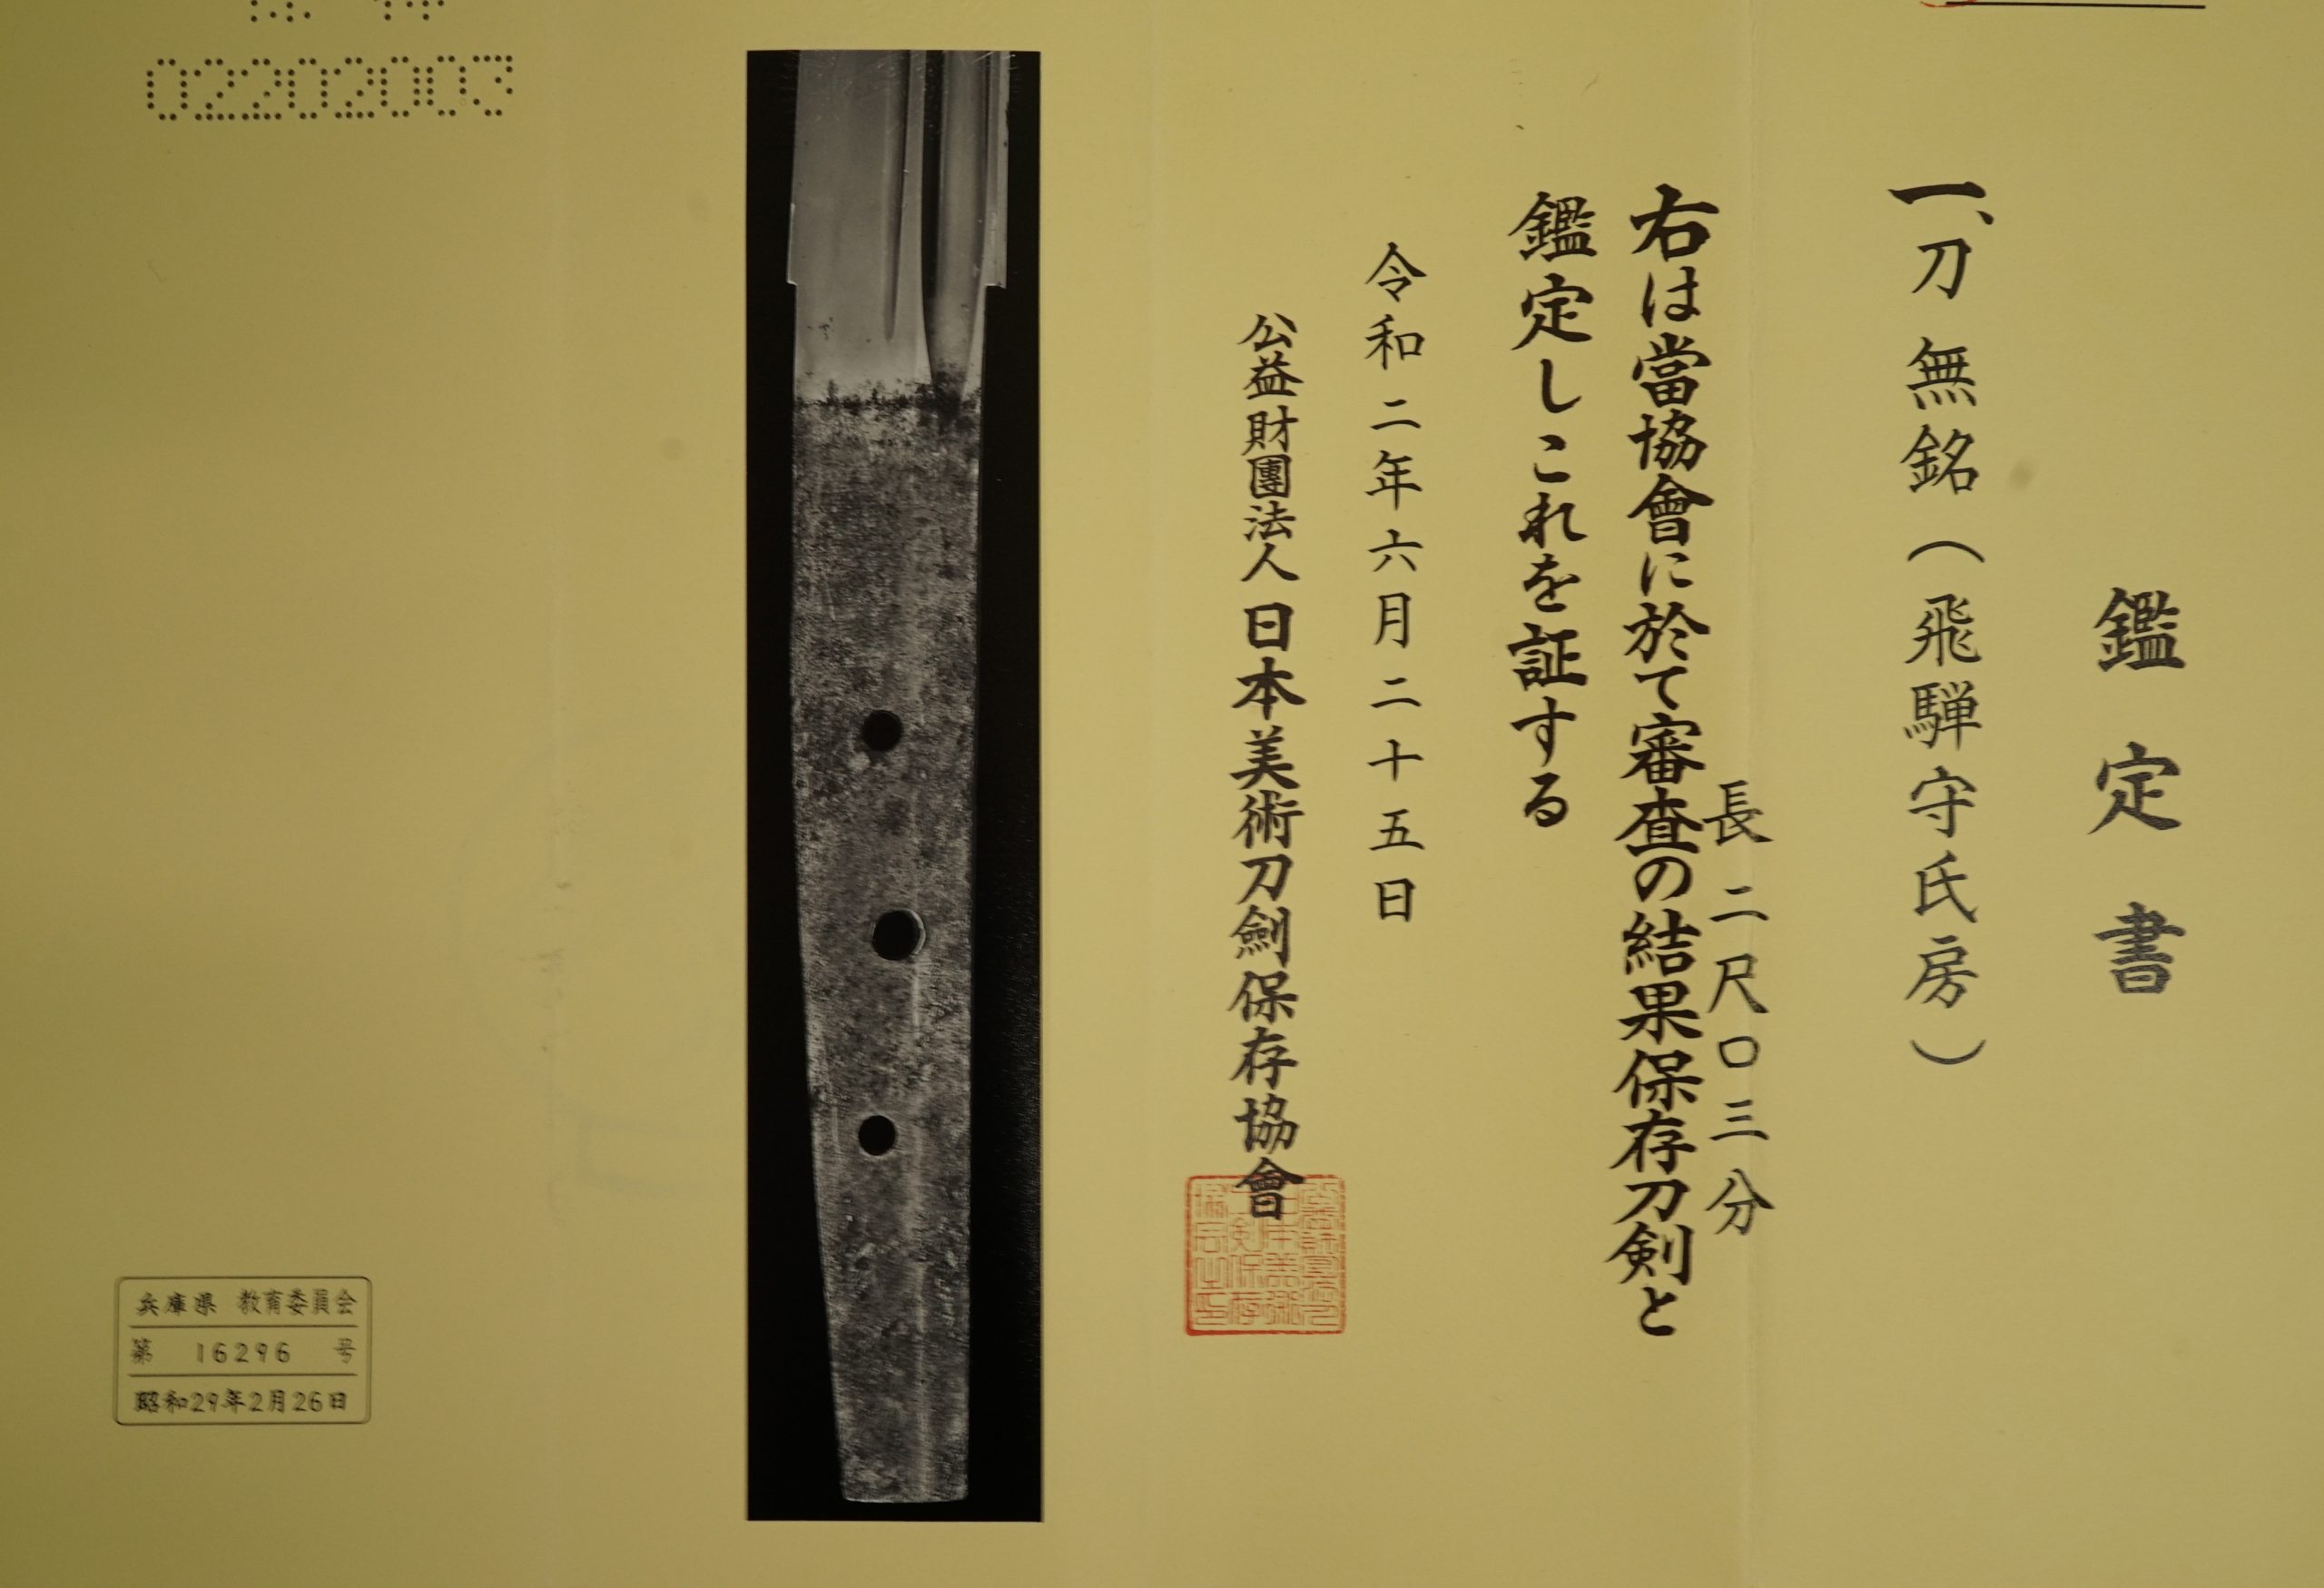 鑑定書
一、刀 無銘（飛騨守氏房）
長 二尺〇三分
右は當協會に於て審査の結果保存刀剣と
鑑定しこれを証する
令和二年六月二十五日
公益財團法人 日本美術刀劍保存協會
02202003
兵庫県 教育委員会
第 16296 号
昭和29年2月26日